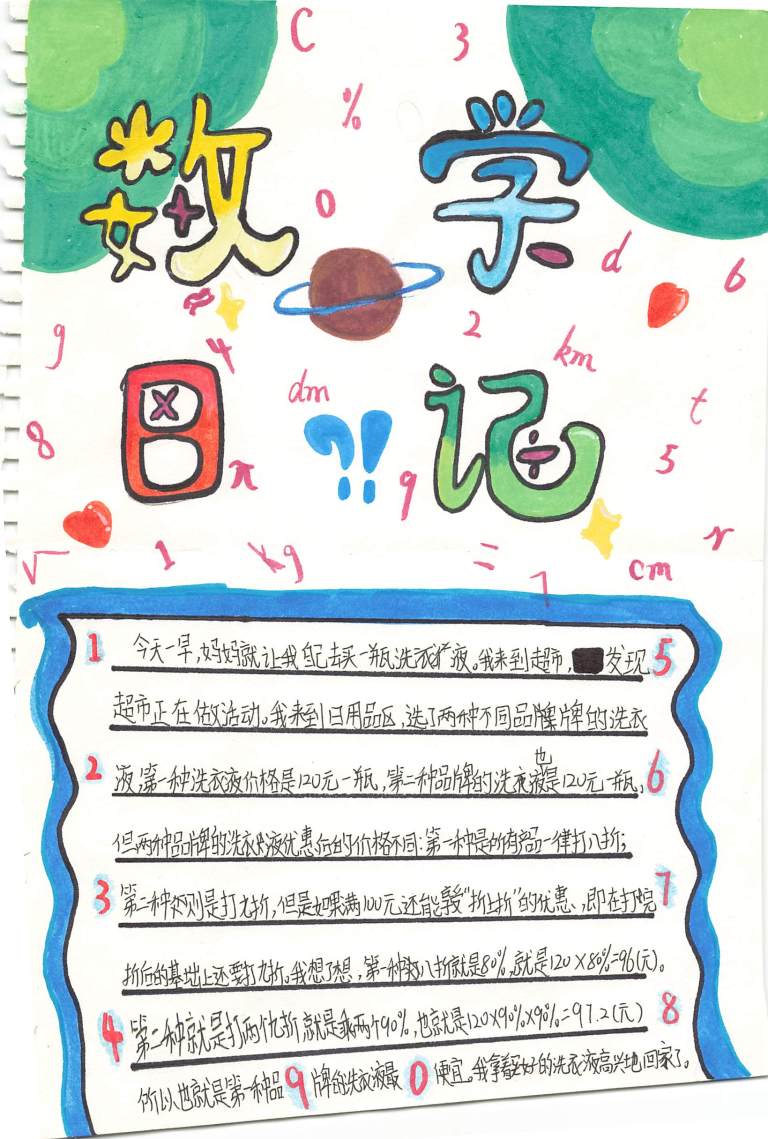 C
3
%
数学
0
d
6
≠
g
4
2
km
dm
t
日记
×
÷
?!
8
π
9
5
r
√
1
kg
=
7
cm
1 今天一早,妈妈就让我自己去买一瓶洗衣液。我来到超市,发现 5
超市正在做活动。我来到日用品区,选了两种不同品牌的洗衣
2 液,第一种洗衣液价格是120元一瓶,第二种品牌的洗衣液也是120元一瓶, 6
但两种品牌的洗衣液优惠后的价格不同:第一种是所有商品一律打八折;
3 第二种则是打九折,但是如果满100元还能享受"折上折"的优惠、即在打完 7
折后的基础上还要打九折。我想了想,第一种打八折就是80%,就是120×80%=96(元)。
4 第二种就是打两个九折,就是乘两个90%,也就是120×90%×90%=97.2(元) 8
所以也就是第一种品 9 牌的洗衣液最 0 便宜。我拿着买好的洗衣液高兴地回家了。